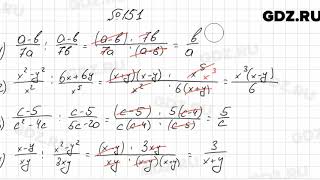 №151
GDZ.RU
) (a-b)/7a : (a-b)/7b = ((a-b) · 7b)/(7a · (a-b)) = b/a
) (x²-y²)/x² : (6x+6y)/x⁵ = ((x+y)(x-y) · x⁵ x³)/(x² · 6(x+y)) = x³(x-y)/6
) (c-5)/(c²-4c) : (c-5)/(5c-20) = ((c-5) · 5(c-4))/(c(c-4) · (c-5)) = 5/c
) (x-y)/xy : (x²-y²)/3xy = ((x-y) · 3xy)/(xy · (x-y)(x+y)) = 3/(x+y)